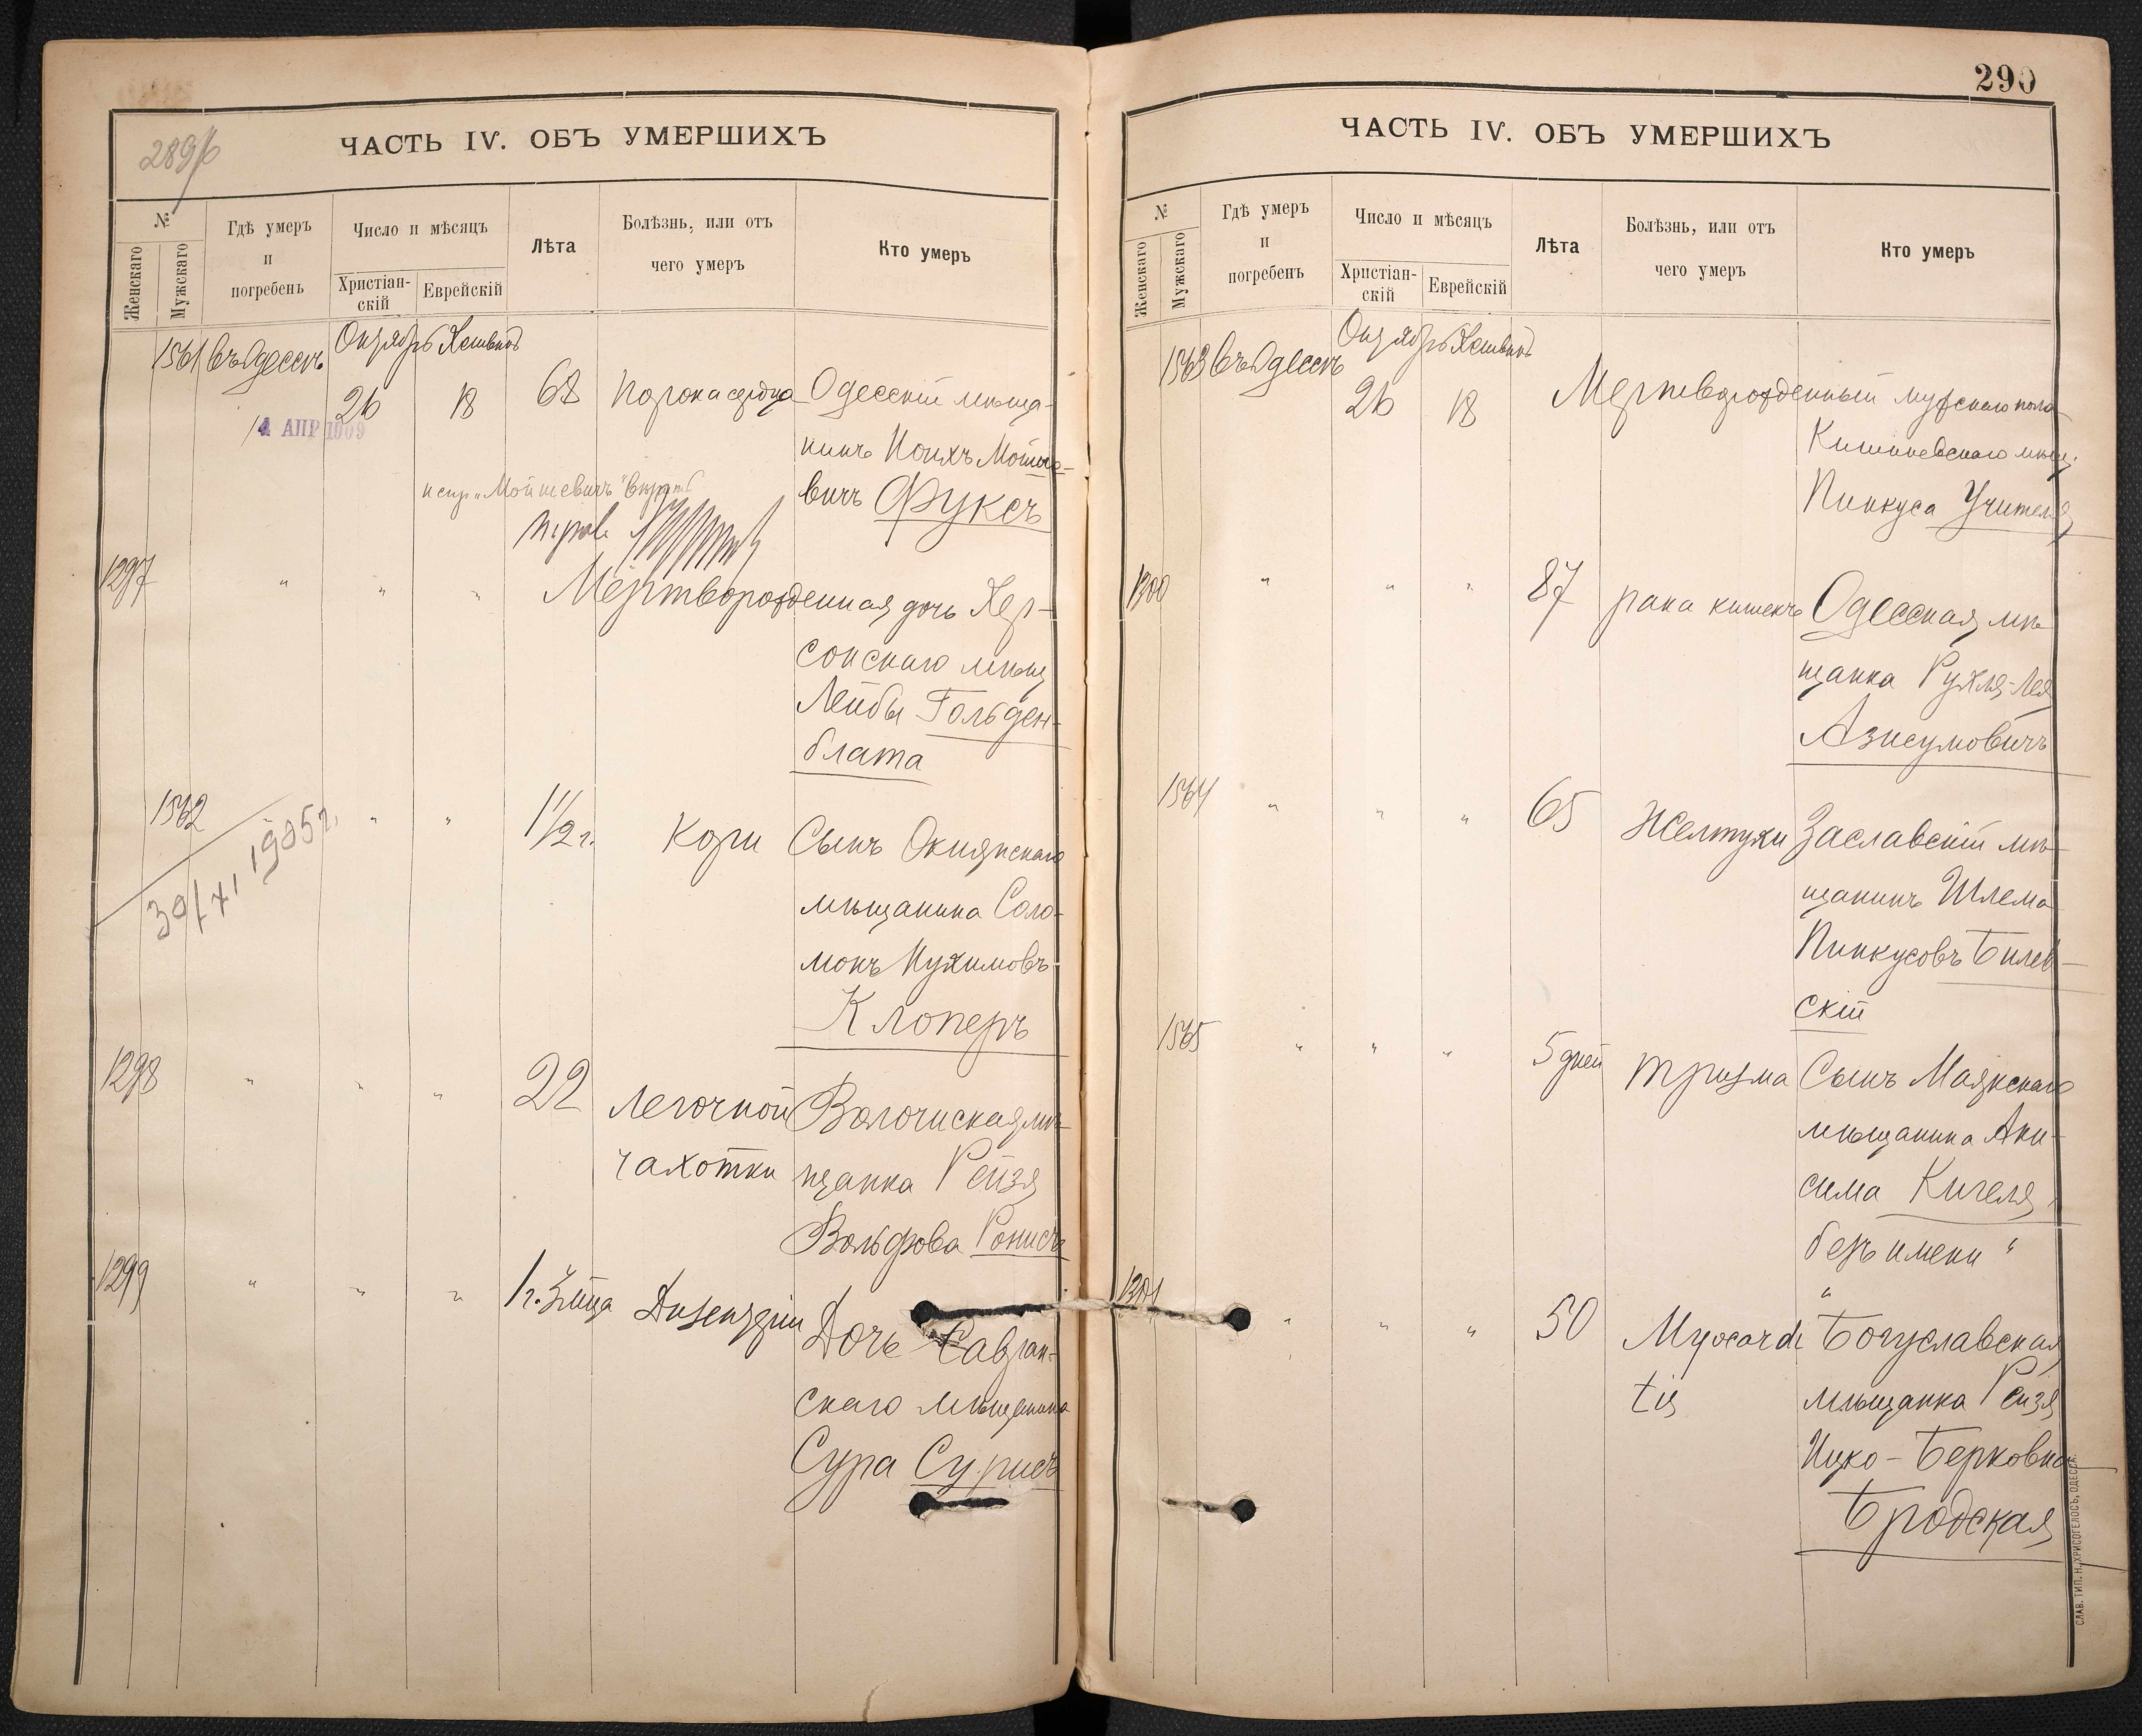 289/б
ЧАСТЬ IV. ОБЪ УМЕРШИХЪ
№
Женскаго
Мужскаго
Гдѣ умеръ
и
погребенъ
Число и мѣсяцъ
Христіан-
скій
Еврейскій
Лѣта
Болѣзнь, или отъ
чего умеръ
Кто умеръ
1561 въ Одессѣ Октябрь Хешванъ
26 18 68 Порока сердца Одесскій мѣща-
нинъ
вичъ Фуксъ
4 АПР 1909
испр. „Мошкевичъ"
1297 " " " Мертворожденная дочь Хер-
сонскаго мѣщ
Лейбы Гольден-
блата
1562 " " " 1 1/2 г. Кори Сынъ Окнянскаго
мѣщанина Соло-
монъ Нухимовъ
Клоперъ
30/XI 1905 г.
1298 " " " 22 Легочной Волочиская мѣ-
чахотки щанка Рейзя
Вольфова Ронисъ
1299 " " " 1 г. 3 мца Дизентеріи Дочь Савран-
скаго мѣщанина
Сура Сурисъ
290
ЧАСТЬ IV. ОБЪ УМЕРШИХЪ
№
Женскаго
Мужскаго
Гдѣ умеръ
и
погребенъ
Число и мѣсяцъ
Христіан-
скій
Еврейскій
Лѣта
Болѣзнь, или отъ
чего умеръ
Кто умеръ
1563 въ Одессѣ Октябрь Хешванъ
26 18 Мертворожденный мужскаго пола
Кишиневскаго мѣщ.
Пинкуса Учителя
1300 " " " 87 рака кишекъ Одесская мѣ-
щанка Рухля-Лея
Азисумовичъ
1564 " " " 65 Желтухи Заславскій мѣ-
щанинъ Шлема
Пинкусовъ Билев-
скій
1565 " " " 5 дней тризма Сынъ Маякскаго
мѣщанина Ани-
сима Кигеля
безъ имени "
1301 " " " 50 Myocardi Богуславская
tis мѣщанка Рейзя
Ицко-Берковна
Бродская
СЛАВ. ТИП. Н. ХРИСОГЕЛОСЪ, ОДЕССА.